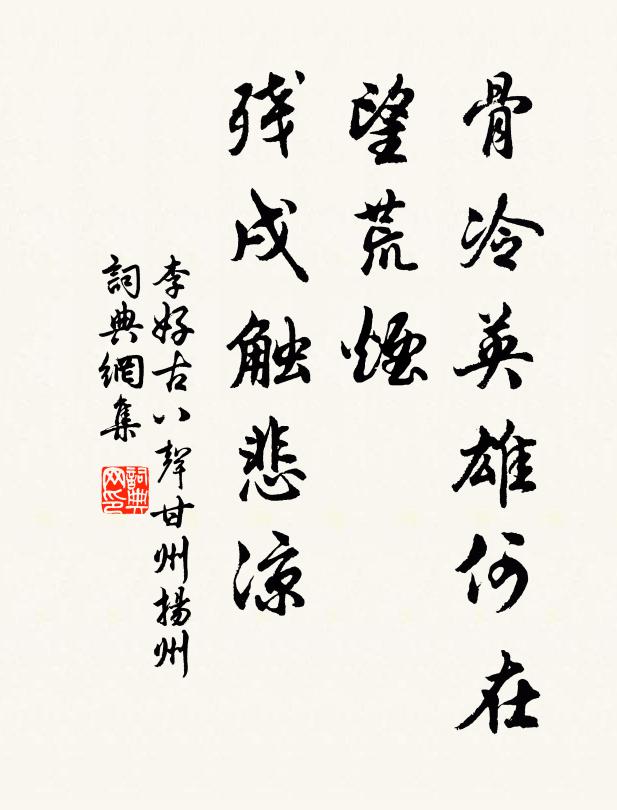 骨冷英雄何在
望荒煙
残戍触悲凉
李好古八聲甘州揚州
詞典網集
詞典网印